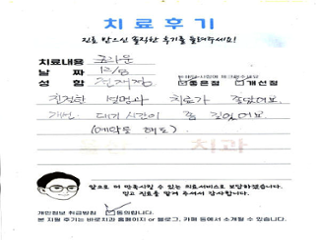 치료후기
진료 받으신 솔직한 후기를 들려주세요!
치료내용 크라운
날 짜 12/8
성 함
좋은점 개선점
친절한 설명과 치료가 좋았어요.
개선 대기 시간이 좀 길었어요
(예약도 해도)
치과
앞으로 더 만족시킬 수 있는 의료서비스로 보답하겠습니다.
믿고 진료를 맡겨 주셔서 감사합니다.
개인정보 취급방침 동의합니다.
본 치료 후기는 바로치과 홈페이지 or 블로그, 카페 등에서 소개될 수 있습니다.